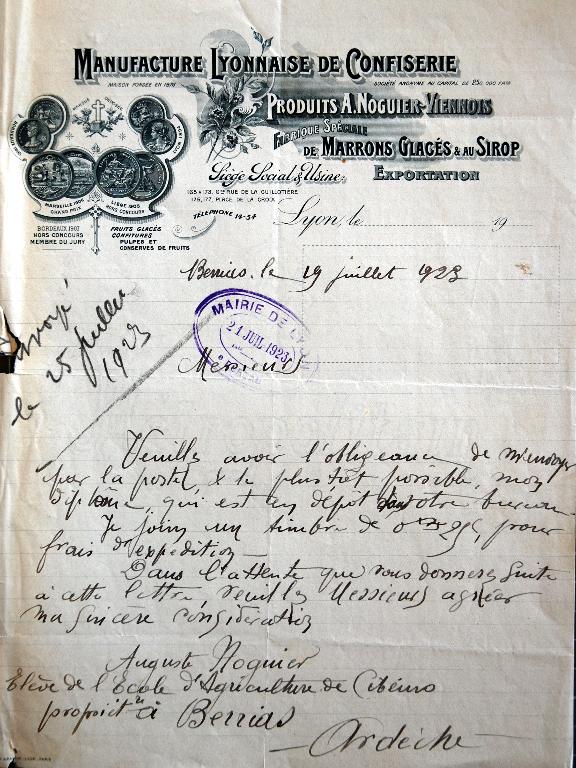 MANUFACTURE LYONNAISE DE CONFISERIE
MAISON FONDÉE EN 1870
SOCIÉTÉ ANONYME AU CAPITAL DE 250.000 FRANCS
PRODUITS A. NOGUIER-VIENNOIS
FABRIQUE SPÉCIALE
DE MARRONS GLACÉS & AU SIROP
Siège Social & Usine
EXPORTATION
MARSEILLE 1906
GRAND PRIX
LIÈGE 1905
HORS CONCOURS
BORDEAUX 1907
HORS CONCOURS
MEMBRE DU JURY
FRUITS GLACÉS
CONFITURES
PULPES ET
CONSERVES DE FRUITS
GDE RUE DE LA GUILLOTIÈRE
PLACE DE LA CROIX
TÉLÉPHONE 14-54
Lyon, le 19
Berrias, le 19 juillet 1923
MAIRIE DE LYON
21 JUIL 1923
Envoyé
le 25 juillet
1923
Messieurs
Veuillez avoir l'obligeance de m'envoyer
par la poste, & le plus tôt possible, mon
diplôme, qui est en dépôt dans votre bureau.
Je joins un timbre de 0 fr 25c, pour
frais d'expédition.
Dans l'attente que vous donnerez suite
à cette lettre, veuillez Messieurs agréer
ma sincère considération
Auguste Noguier
Elève de l'Ecole d'Agriculture de Cibeins
propriétre à Berrias
Ardèche